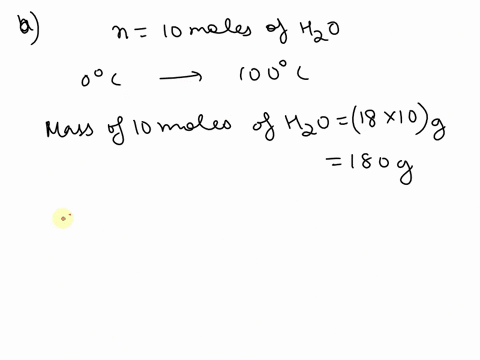 a) n = 10 moles of H₂O
0°C → 100°C
Mass of 10 moles of H₂O = (18 × 10) g
= 180 g